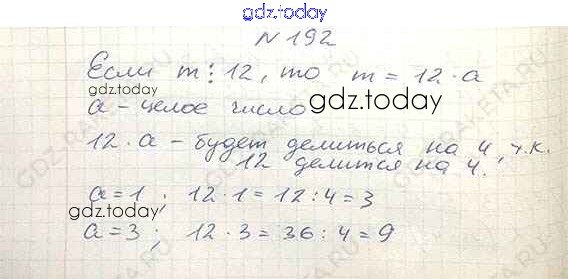 gdz.today
№ 192
Если m⋮12, то m = 12·a
a - целое число gdz.today
12·a - будет делиться на 4, т.к.
12 делится на 4.
a=1; 12·1=12:4=3
gdz.today
a=3; 12·3=36:4=9